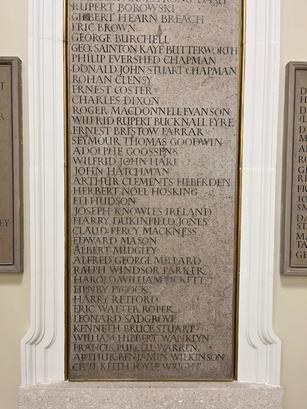 RUPERT BOROWSKI
GILBERT HEARN BREACH
ERIC BROWN
GEORGE BURCHELL
GEO. SAINTON KAYE BUTTERWORTH
PHILIP EVERSHED CHAPMAN
DONALD JOHN STUART CHAPMAN
ROHAN CLENSY
ERNEST COSTER
CHARLES DIXON
ROGER MACDONNELL EVANSON
WILFRID RUPERT BUCKNALL FYRE
ERNEST BRISTOW FARRAR
SEYMOUR THOMAS GOODWIN
ADOLPHE GOOSSENS
WILFRID JOHN HART
JOHN HATCHMAN
ARTHUR CLEMENTS HEBERDEN
HERBERT NOEL HOSKING
ELI HUDSON
JOSEPH KNOWLES IRELAND
HARRY DUKINFIELD JONES
CLAUD PERCY MACKNESS
EDWARD MASON
ALBERT MIDGLEY
ALFRED GEORGE MILLARD
RALPH WINDSOR PARKER
HAROLD WILLIAM PICKETT
HENRY PYCOCK
HARRY RETFORD
ERIC WALTER ROPER
LEONARD SADGROVE
KENNETH BRUCE STUART
WILLIAM HIBBERT WANKLYN
FRANCIS PURCELL WARREN
ARTHUR BENJAMIN WILKINSON
CECIL KEITH FOYLE WRIGHT